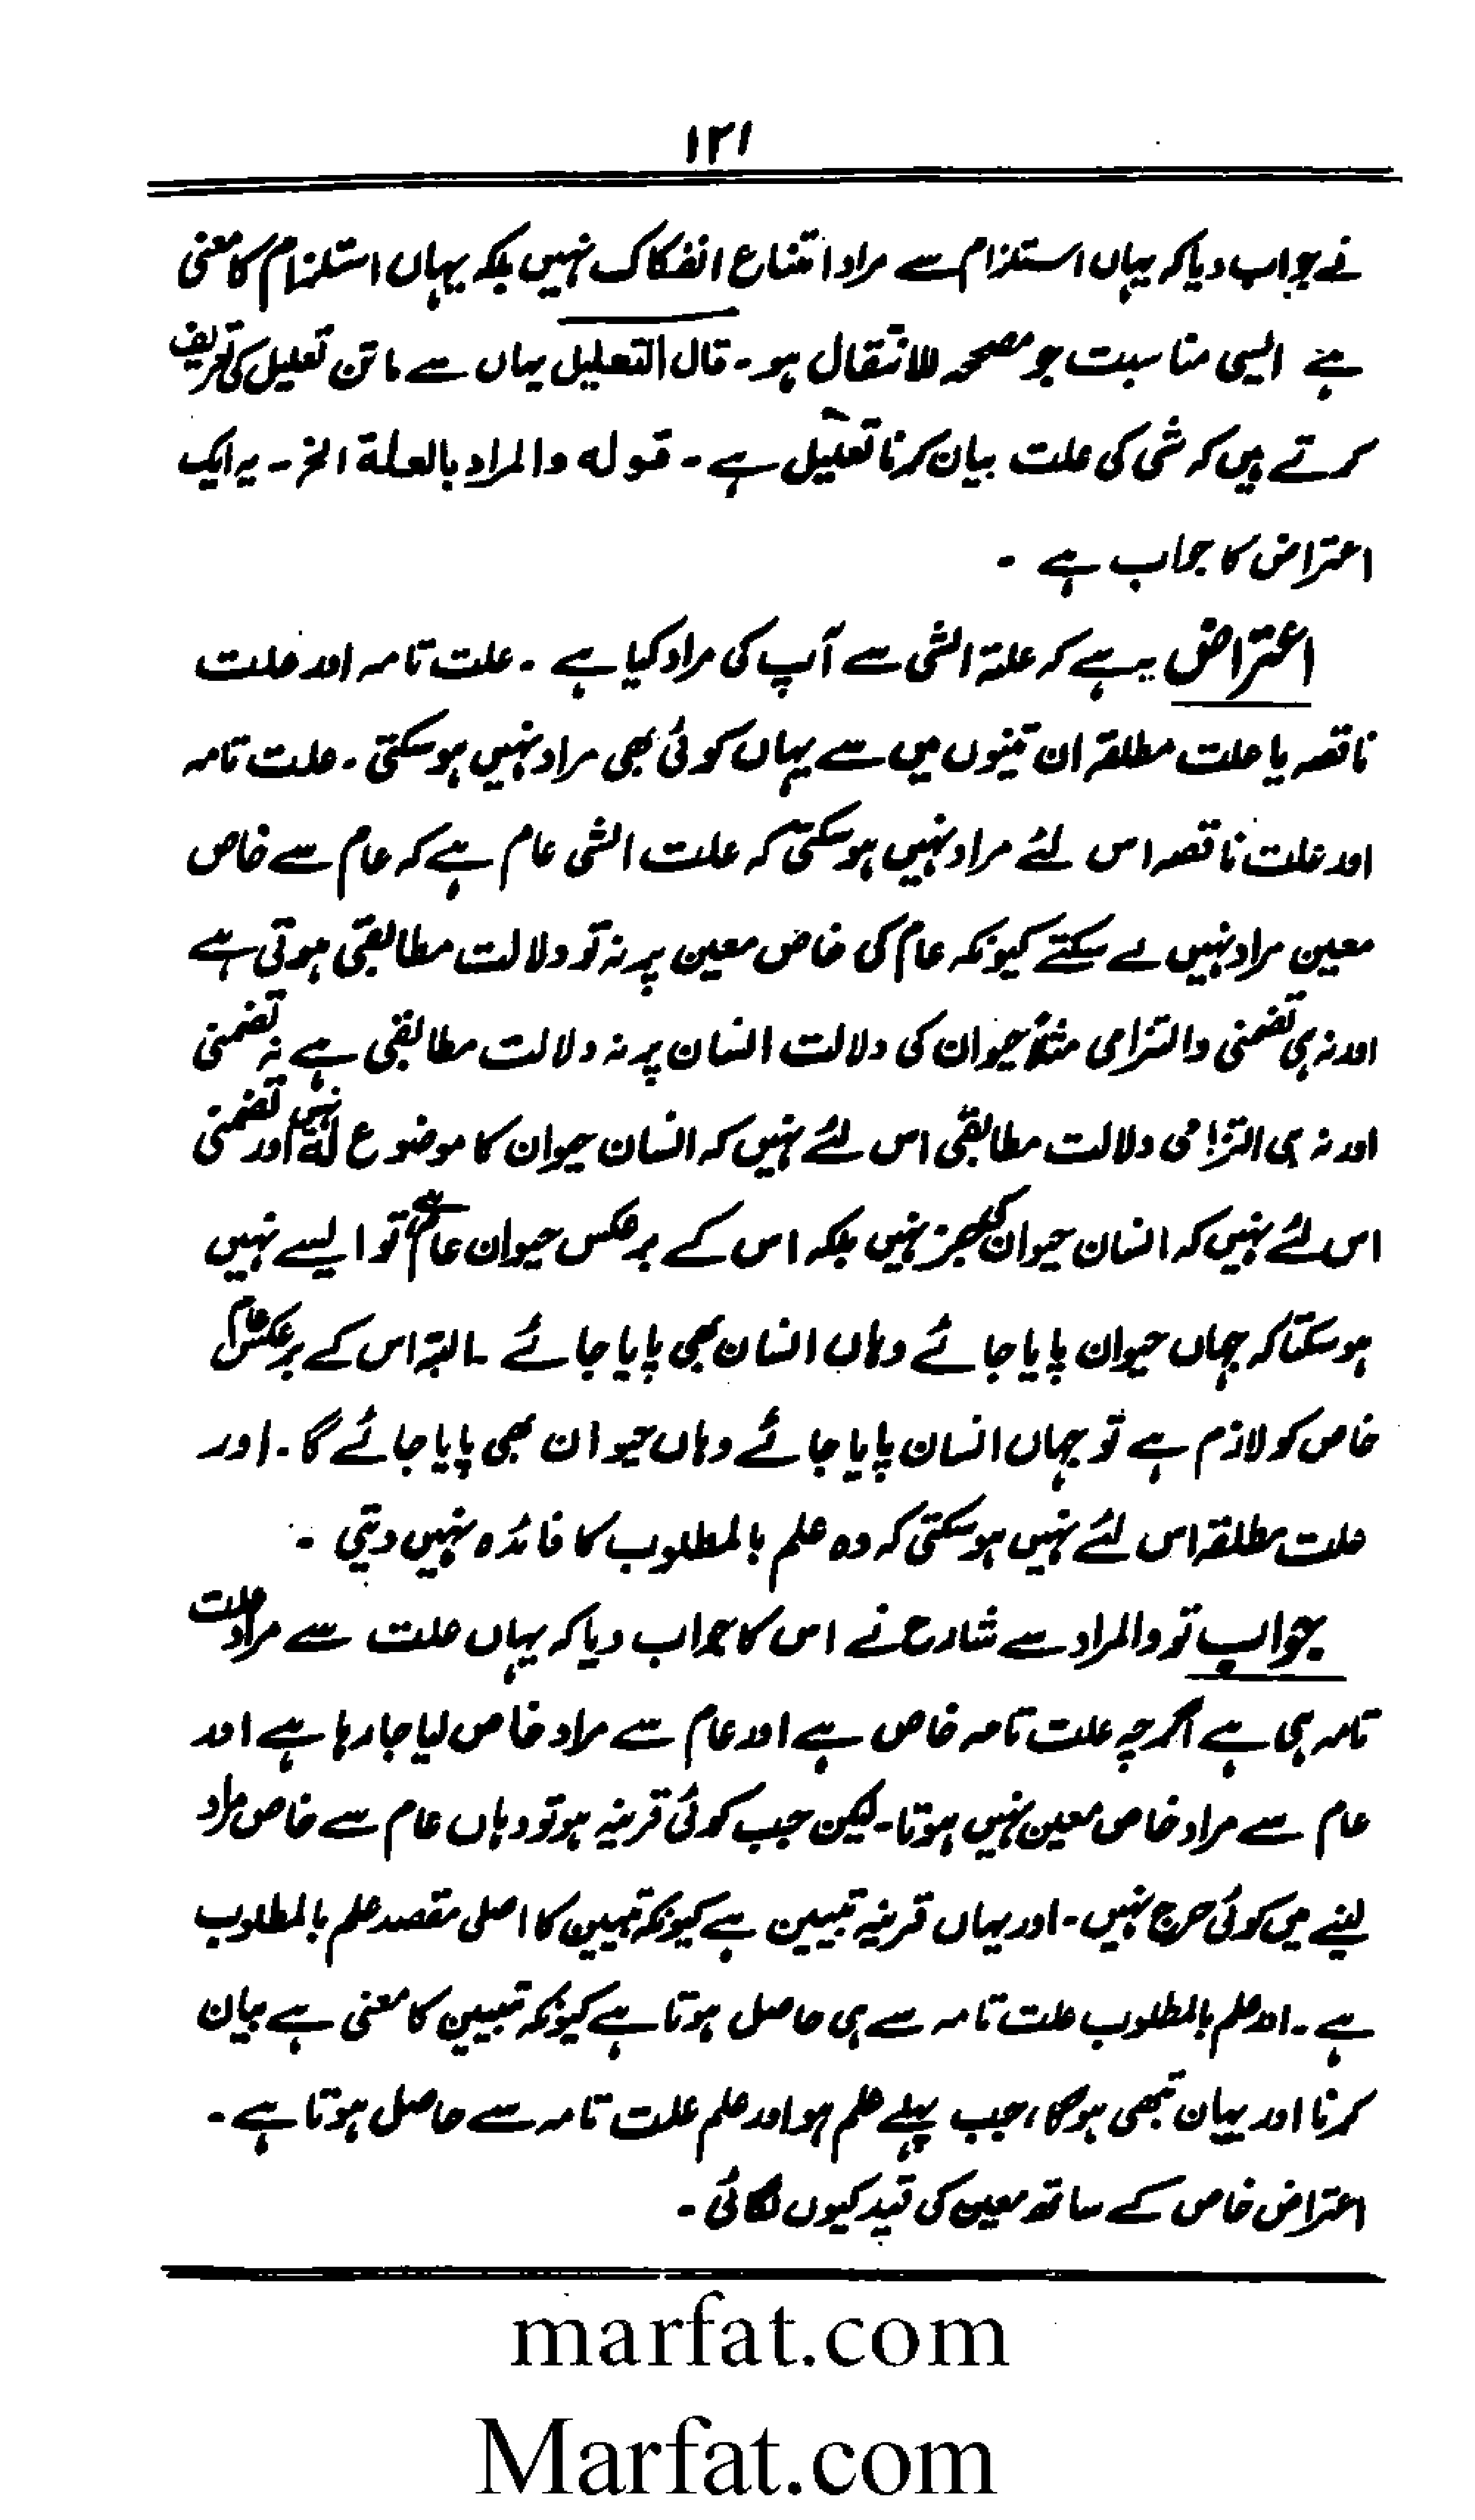 ۱۲۱
نے جواب دیا کہ یہاں استلزام سے مراد امتناع انفکاک نہیں بلکہ یہاں استلزام کا معنی
ہے ایسی مناسبت جو مصححہ للانتقال ہو۔ قال التعلیل یہاں سے ماتن تعلیل کی تعریف
کرتے ہیں کہ شی کی علت بیان کرنا تعلیل ہے۔ قولہ والمراد بالعلۃ الخ۔ یہ ایک
اعتراض کا جواب ہے۔
اعتراض یہ ہے کہ علۃ الشی سے آپ کی مراد کیا ہے۔ علت تامہ اور علت
ناقصہ یا علت مطلقہ ان تینوں میں سے یہاں کوئی بھی مراد نہیں ہوسکتی۔ علت تامہ
اور علت ناقصہ اس لئے مراد نہیں ہوسکتی کہ علت الشی عام ہے کہ عام سے خاص
معین مراد نہیں لے سکتے کیونکہ عام کی خاص معین پر نہ تو دلالت مطابقی ہوتی ہے
اور نہ ہی تضمنی والتزامی مثلاً حیوان کی دلالت انسان پر نہ دلالت مطابقی ہے نہ تضمنی
اور نہ ہی التزامی دلالت مطابقی اس لئے نہیں کہ انسان حیوان کا موضوع لہ نہیں اور تضمنی
اس لئے نہیں کہ انسان حیوان کی جز نہیں بلکہ اس کے برعکس حیوان عام ہے تو ایسے نہیں
ہوسکتا کہ جہاں حیوان پایا جائے وہاں انسان بھی پایا جائے۔ البتہ اس کے برعکس عام
خاص کو لازم ہے تو جہاں انسان پایا جائے وہاں حیوان بھی پایا جائے گا۔ اور
علت مطلقہ اس لئے نہیں ہوسکتی کہ وہ علم بالمطلوب کا فائدہ نہیں دیتی۔
جواب تو والمراد سے شارح نے اس کا جواب دیا کہ یہاں علت سے مراد علت
تامہ ہی ہے اگرچہ علت تامہ خاص ہے اور عام سے مراد خاص لیا جارہا ہے اور
عام سے مراد خاص معین نہیں ہوتا۔ لیکن جب کوئی قرینہ ہو تو وہاں عام سے خاص مراد
لینے میں کوئی حرج نہیں۔ اور یہاں قرینہ تبیین ہے کیونکہ تبیین کا اصلی مقصد علم بالمطلوب
ہے۔ اور علم بالمطلوب علت تامہ سے ہی حاصل ہوتا ہے کیونکہ تبیین کا معنی ہے بیان
کرنا اور بیان تبھی ہوگا، جب پہلے علم ہو اور علم علت تامہ سے حاصل ہوتا ہے۔
اعتراض خاص کے ساتھ معین کی قید کیوں لگائی۔
marfat.com
Marfat.com